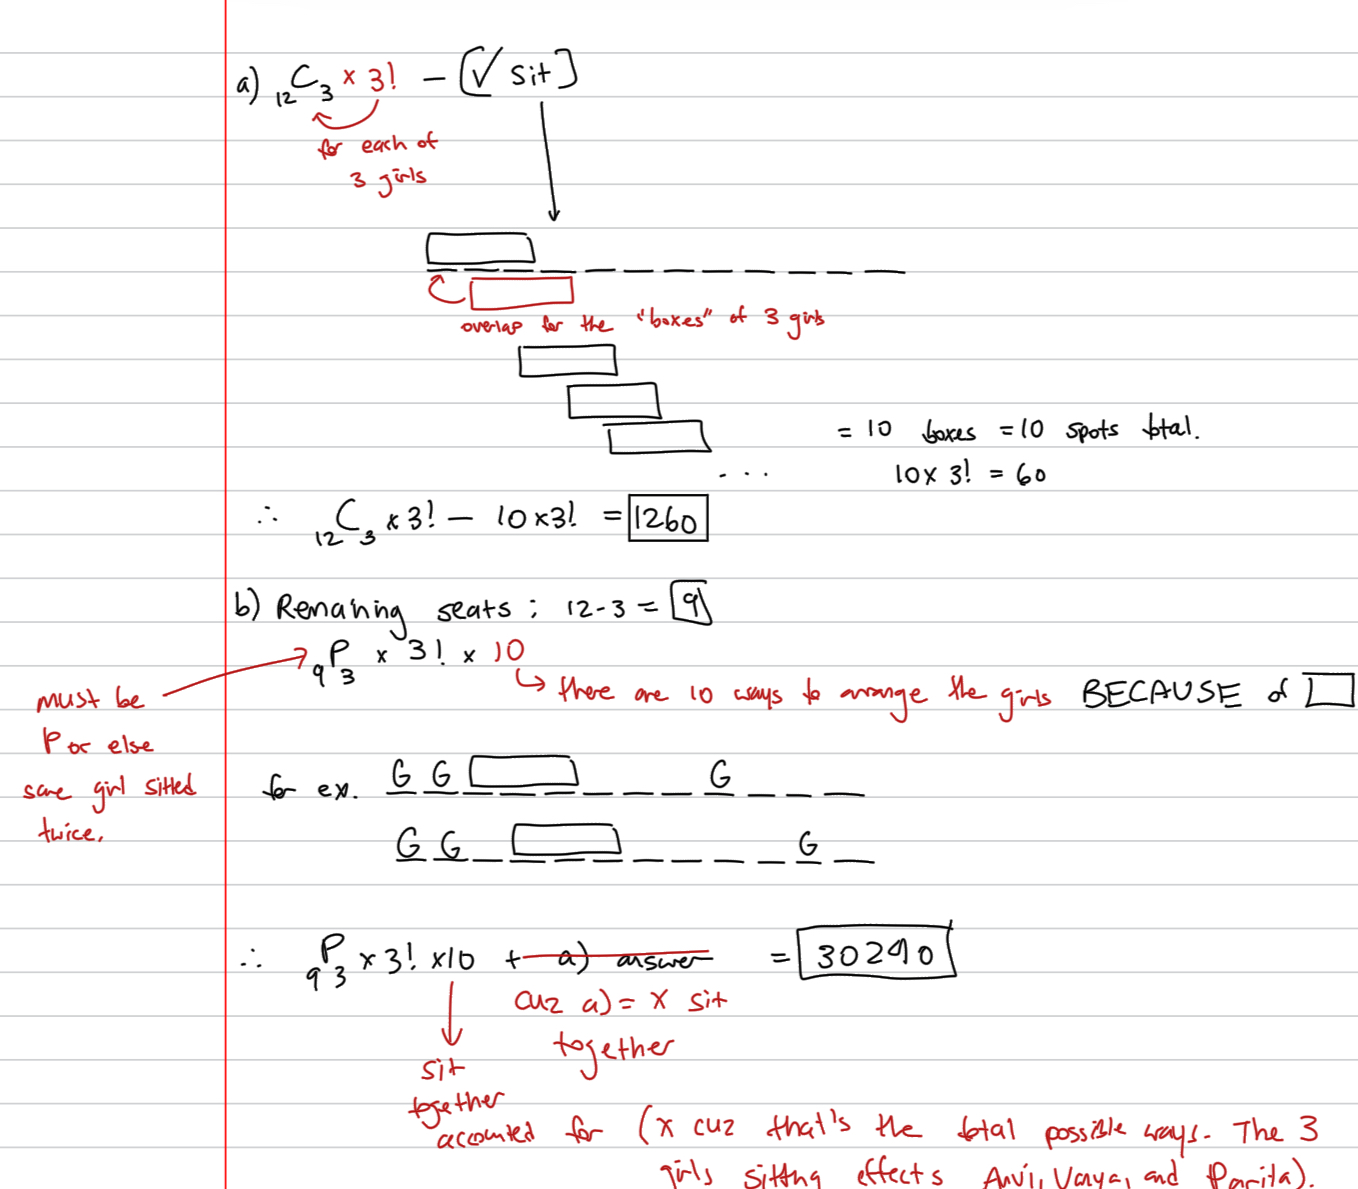 a) ₁₂C₃ × 3! − [✓ sit]
for each of
3 girls
overlap for the "boxes" of 3 girls
= 10 boxes = 10 spots total.
. . .
10 x 3! = 60
∴ ₁₂C₃ x 3! − 10 x 3! = 1260
b) Remaining seats : 12 - 3 = 9
₉P₃ x 3! x 10
there are 10 ways to arrange the girls BECAUSE of
must be
P or else
same girl sitted
twice.
for ex. G G G
G G G
∴ ₉P₃ x 3! x10 + a) answer = 30240
cuz a) = X sit
together
sit
together
accounted for (x cuz that's the total possible ways. The 3
girls sitting effects Anvi, Vanya, and Parita).